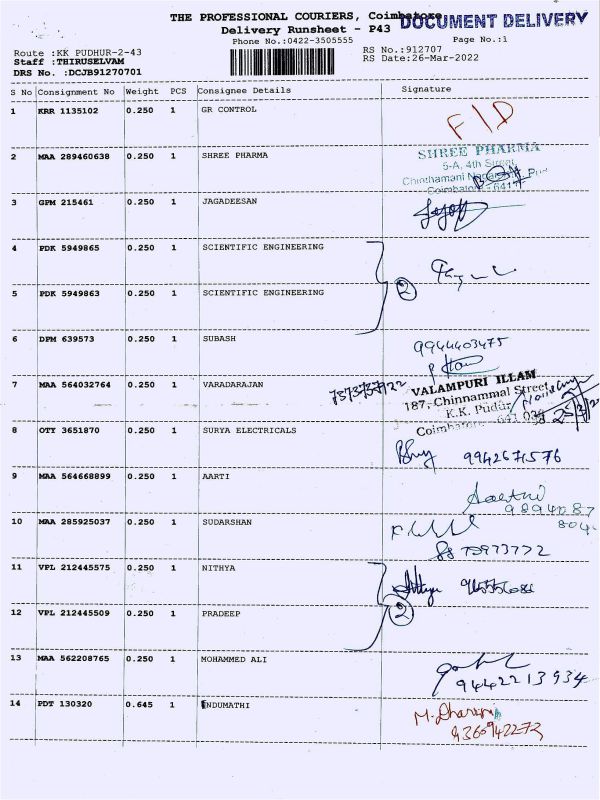 THE PROFESSIONAL COURIERS, Coimbatore
DOCUMENT DELIVERY
Delivery Runsheet - P43
Phone No.:0422-3505555
Page No.:1
Route :KK PUDHUR-2-43
RS No.:912707
Staff :THIRUSELVAM
RS Date:26-Mar-2022
DRS No. :DCJB91270701
S No Consignment No Weight PCS Consignee Details Signature
1 KRR 1135102 0.250 1 GR CONTROL
F/D
2 MAA 289460638 0.250 1 SHREE PHARMA
SHREE PHARMA
5-A, 4th Street,
3 GPM 215461 0.250 1 JAGADEESAN
4 PDK 5949865 0.250 1 SCIENTIFIC ENGINEERING
2
5 PDK 5949863 0.250 1 SCIENTIFIC ENGINEERING
6 DPM 639573 0.250 1 SUBASH
9944403475
7 MAA 564032764 0.250 1 VARADARAJAN
VALAMPURI ILLAM
187, Chinnammal Street,
K.K. Pudur
8 OTY 3651870 0.250 1 SURYA ELECTRICALS
9942671576
9 MAA 564668899 0.250 1 AARTI
10 MAA 285925037 0.250 1 SUDARSHAN
11 VPL 212445575 0.250 1 NITHYA
2
12 VPL 212445509 0.250 1 PRADEEP
13 MAA 562208765 0.250 1 MOHAMMED ALI
9442213934
14 PDT 130320 0.645 1 INDUMATHI
9360942273